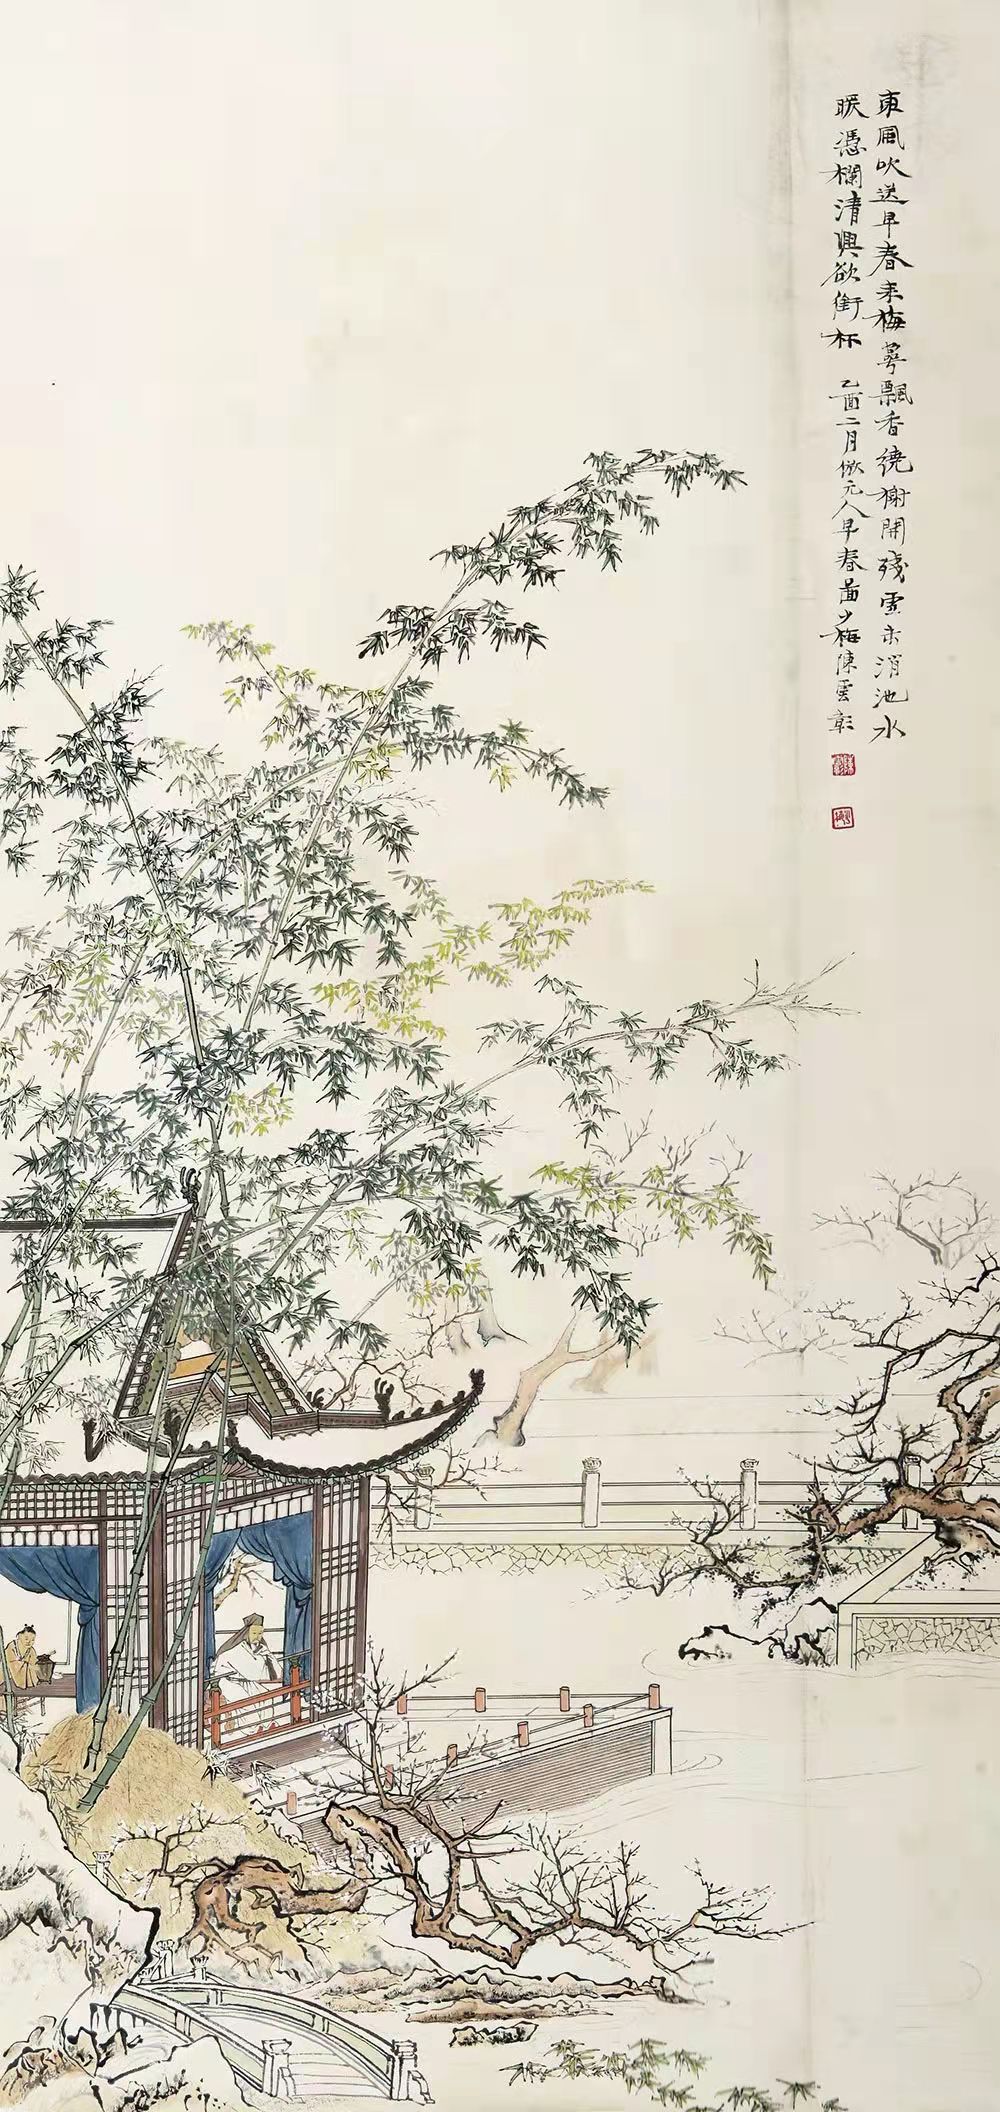 東風吹送早春來梅萼飄香繞榭開殘雪未消池水
暖憑欄清興欲銜杯
乙酉二月倣元人早春圖少梅陳雲彰